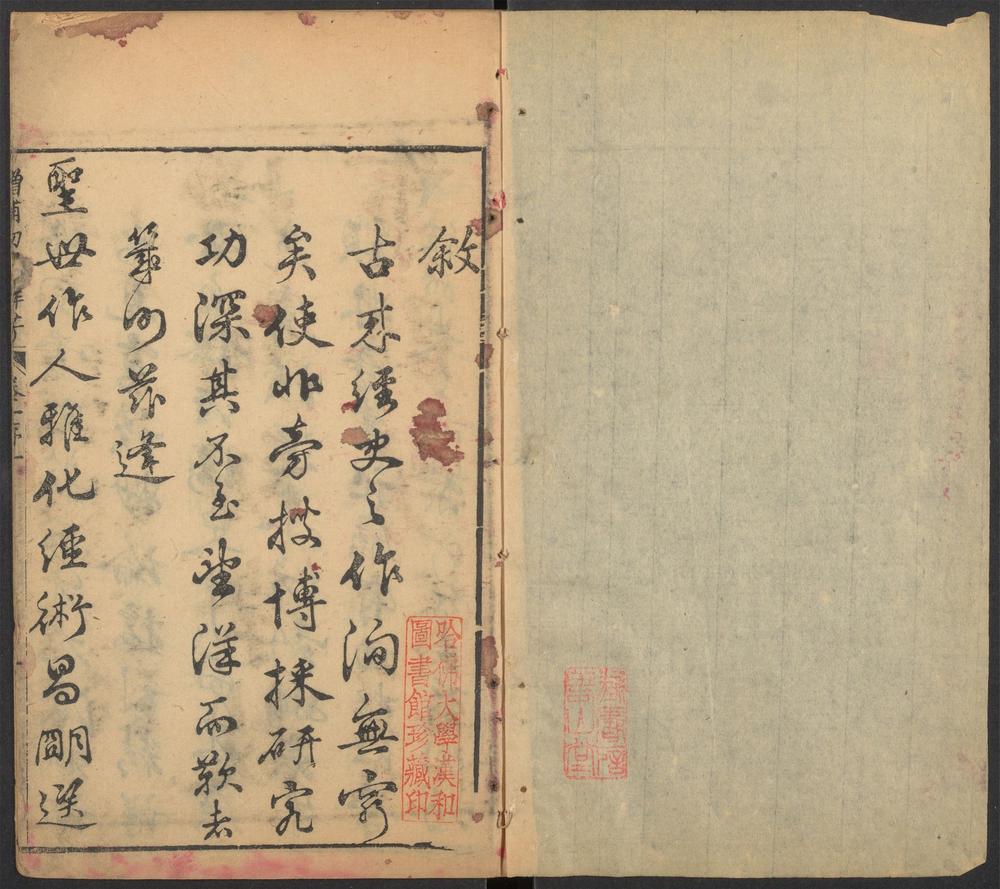 敘
古來經史之作洵無窮
矣使非旁搜博採研究
功深其不至望洋而歎者
幾何茲逢
聖世作人雅化經術昌明選
增補
哈佛大學漢和
圖書館珍藏印
山堂